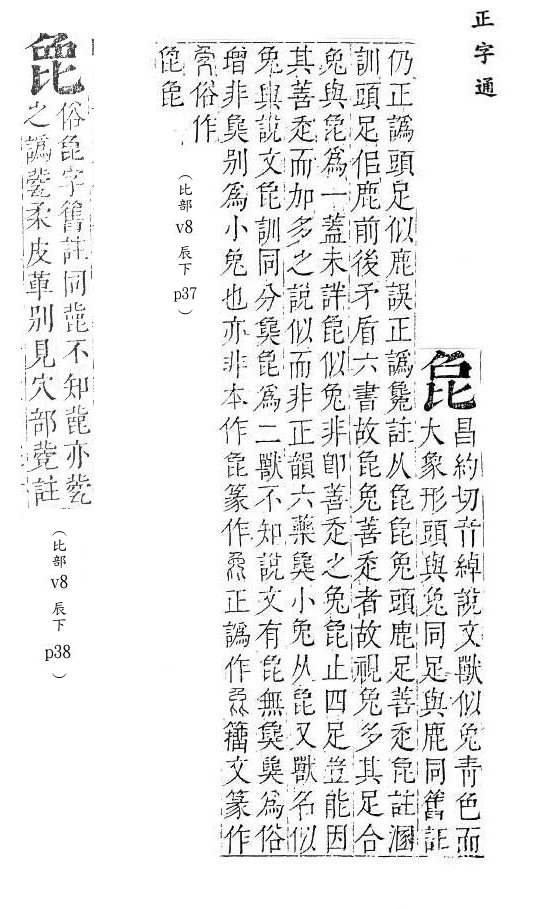 正字通
㲋
昌約切音綽說文獸似兔青色而
大象形頭與兔同足與鹿同舊註
仍正譌頭足似鹿誤正譌毚註从㲋㲋兔頭鹿足善走㲋註溷
訓頭足佀鹿前後矛盾六書故㲋兔善走者故視兔多其足合
兔與㲋爲一蓋未詳㲋似兔非卽善走之兔㲋止四足豈能因
其善走而加多之說似而非正韻六藥㚟小兔从㲋又獸名似
兔與說文㲋訓同分㚟㲋爲二獸不知說文有㲋無㚟㚟爲俗
增非㚟別爲小兔也亦非本作㲋篆作正譌作籀文篆作
俗作
㲋
(比部 v8 辰下 p37)
俗㲋字舊註同不知亦
之譌柔皮革別見穴部註
(比部 v8 辰下 p38)